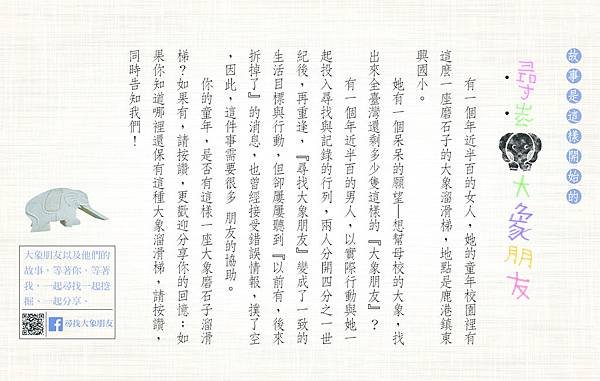 故事是這樣開始的
尋找大象朋友
有一個年近半百的女人，她的童年校園裡有
這麼一座磨石子的大象溜滑梯，地點是鹿港鎮東
興國小。
她有一個呆呆的願望—想幫母校的大象，找
出來全臺灣還剩多少隻這樣的『大象朋友』？
有一個年近半百的男人，以實際行動與她一
起投入尋找與記錄的行列，兩人分開四分之一世
紀後，再重逢，『尋找大象朋友』變成了一致的
生活目標與行動，但卻屢屢聽到『以前有，後來
拆掉了』的消息，也曾經接受錯誤情報，撲了空
，因此，這件事需要很多 朋友的協助。
你的童年，是否有這樣一座大象磨石子溜滑
梯？如果有，請按讚，更歡迎分享你的回憶；如
果你知道哪裡還保有這種大象溜滑梯，請按讚，
同時告知我們！
大象朋友以及他們的
故事，等著你，等著
我，一起尋找一起挖
掘、一起分享。
f 尋找大象朋友